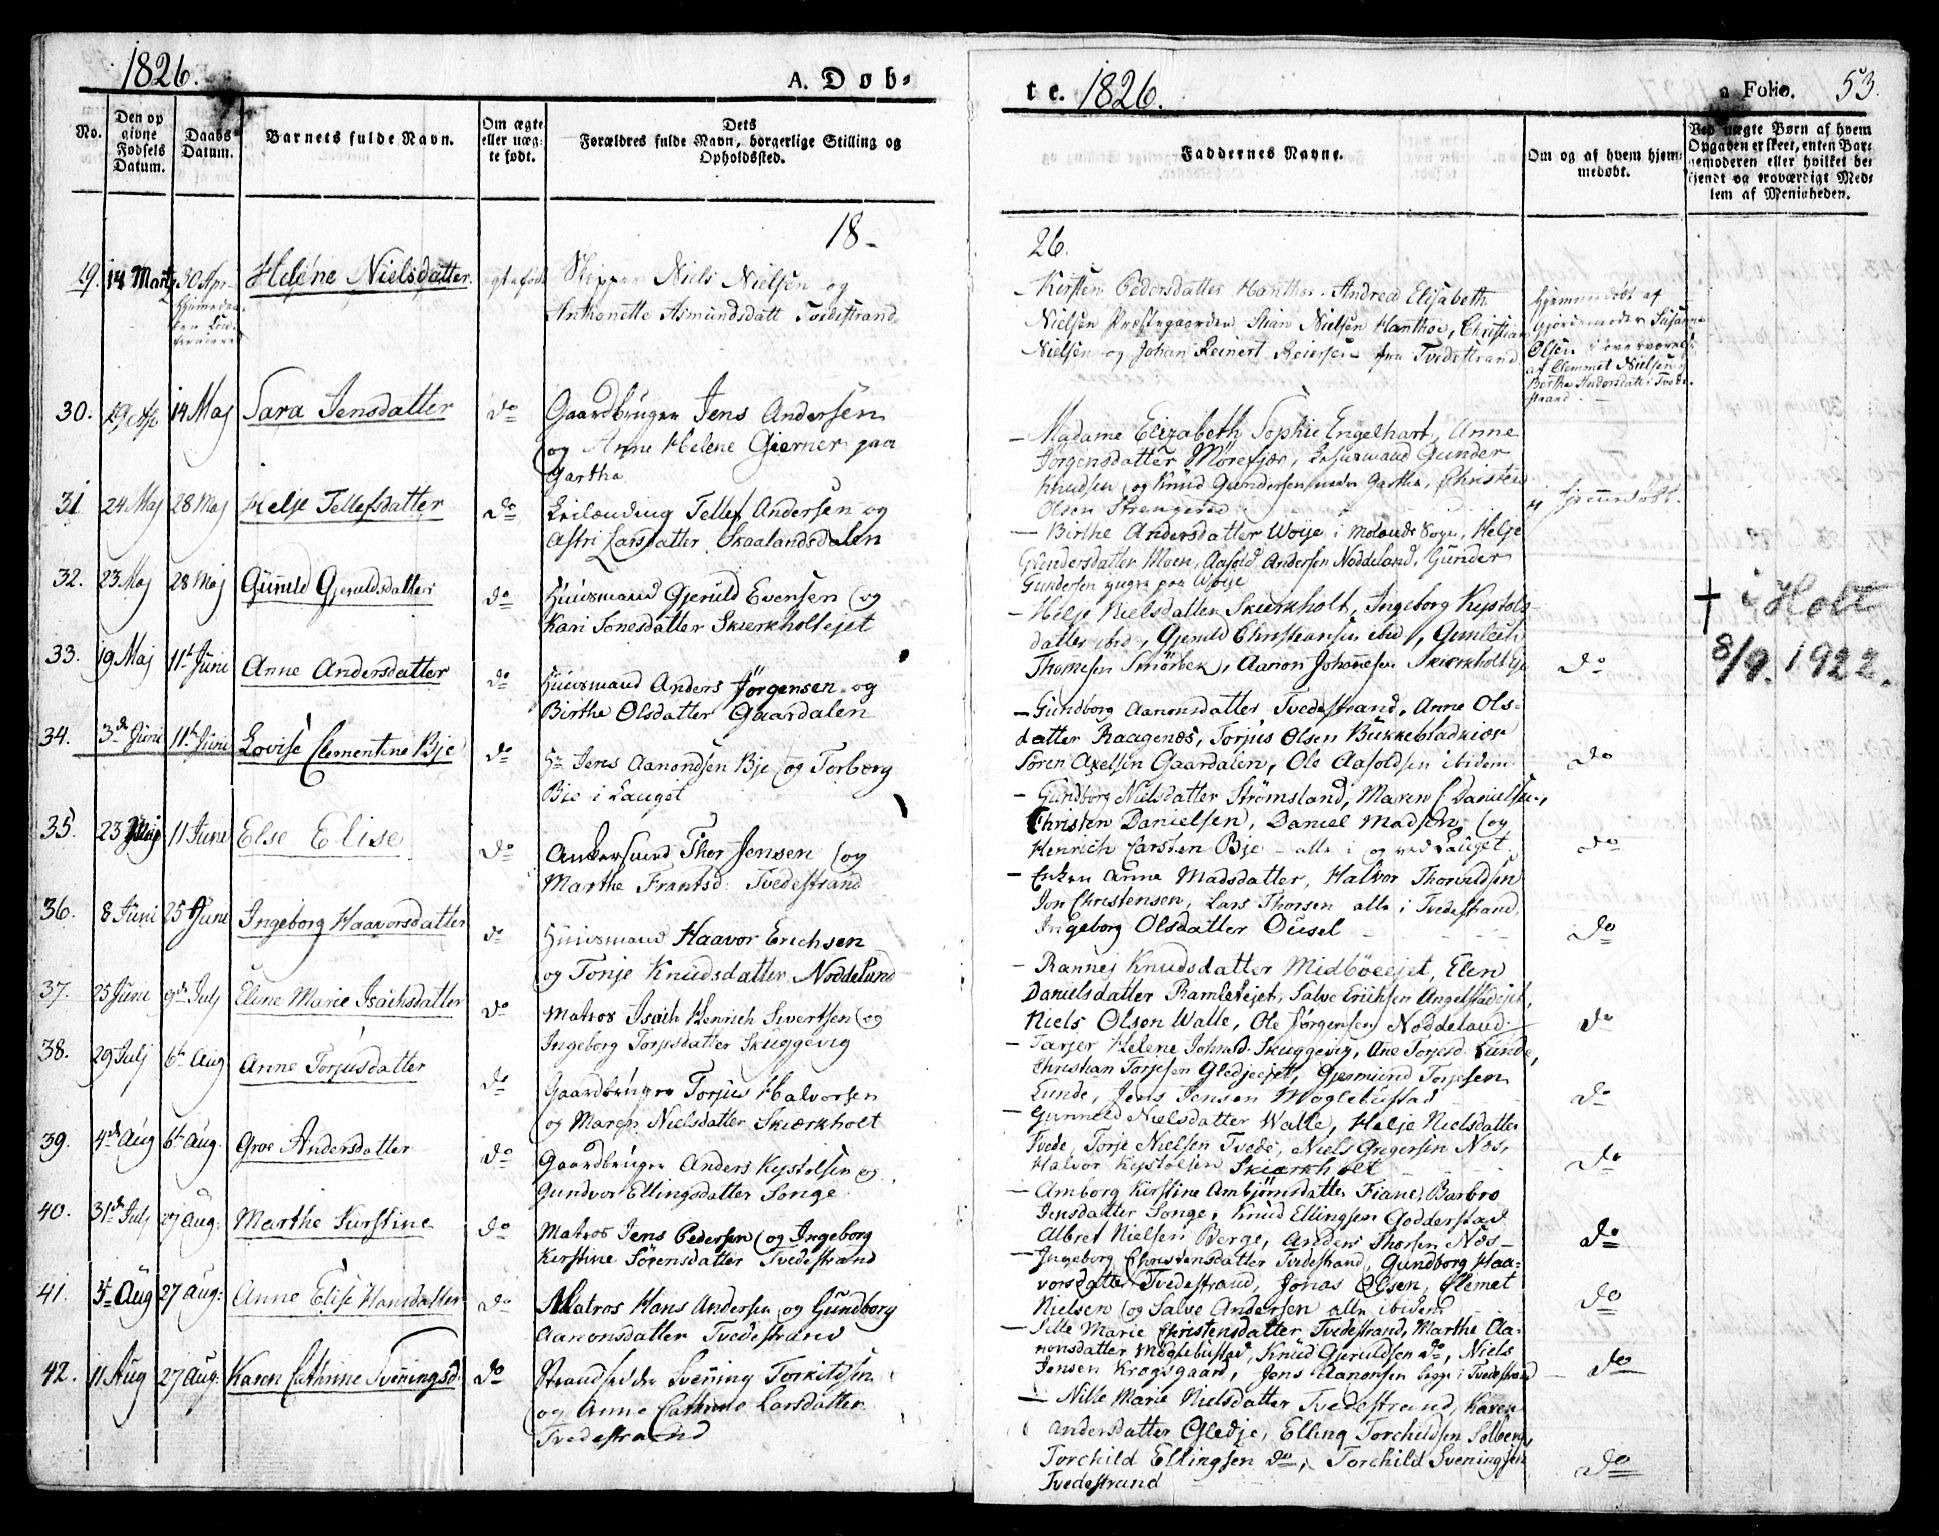 1826.
A. Døb-
No.
Den op
givne
Fødsels
Datum.
Daabs
Datum.
Barnets fulde Navn.
Om ægte
eller uæg-
te født.
Dets
Forældres fulde Navn, borgerlige Stilling og
Opholdssted.
18-
29. 14 Martz 30 Apr. Heléne Nielsdatter. egte født Skipper Niels Nielsen og
Anthonette Asmundsdatt Tvedestrand
30. 29 Apr 14 Maj Sara Jensdatter do Gaardbruger Jens Andersen
og Anne Helene Gierner paa
Gartha
31 24 Maj 28 Maj Helje Tellefsdatter do Leilænding Tellef Andersen og
Astri Larsdatter Skaalandsdalen
32. 23 Maj 28 Maj Gunild Gjeruldsdatter do Huusmand Gjeruld Evensen og
Kari Tonesdatter Skierkholtejet
33. 19 Maj 11t Juni Anne Andersdatter do Huusmand Anders Jörgensen og
Birthe Olsdatter Gaardalen
34. 3de Juni 11t Juni Lovise Clementine Bje do Hr Jens Aanondsen Bje og Torborg
Bie i Lauget
35. 23 Maj 11 June Else Elise do Ankersmed Thor Jensen og
Marthe Frantsd: Tvedestrand
36. 8 Juni 25 Juni Ingeborg Haavorsdatter do Huusmand Haavor Erichsen
og Tonje Knudsdatter Noddelund
37. 25 Juni 9de Julj Eline Marie Isachsdatter do Matros Isach Henrich Sivertsen og
Ingeborg Torjusdatter Skuggevig
38. 29 Julj 6te Aug Anne Torjusdatter do Gaardbruger Torjus Halvorsen
og Maren Nielsdatter Skiærkholt
39. 4de Aug 6te Aug. Groe Andersdatter do Gaardbruger Anders Kystolsen og
Gundvor Ellingsdatter Songe
40. 31de Julj 27 Aug: Marthe Kirstine do Matros Jens Pedersen og Ingeborg
Kirstine Sörensdatter Tvedestrand
41. 5t Aug 27 Aug: Anne Elise Hansdatter do Matros Hans Andersen og Gundborg
Aanonsdatter Tvedestrand
42. 11 Aug 27 Aug: Karen Cathrine Sveningsd: do Strandsidder Svening Torkildsen
og Anne Cathrine Larsdatter
Tvedestrand
te. 1826.
a Folio. 53.
Faddernes Navne.
Om og af hvem hjem-
medøbt.
Ved uægte Børn af hvem
Opgaven er skeet, enten Bar-
nemoderen eller hvilket be-
kjendt og troværdigt Med-
lem af Menigheden.
26.
- Kirsten Pedersdatter Hanthoe, Andrea Elisabeth
Nielsen Præstegaarden, Stian Nielsen Hanthoe, Christian
Nielsen og Johan Reinert Reiersen fra Tvedestrand
hjemmedøbt af
Gjordemoder Susanne
Olsen i overværelse
af Clemmet Nielsen
Berthe Andersdatter Tvede-
strand
- Madame Elizabeth Sophie Engelhart, Anne
Jörgensdatter Mörefjær, Gunder
Knudsen og Knud Gundersen Gartha, Christen
Olsen Strengereid
ej hjemmedøbt.
- Birthe Andersdatter Woje i Molands Sogn, Helje
Gundersdatter Moen, Aasold Andersen Noddeland, Gunder
Gundersen yngre paa Woje
- Helje Nielsdatter Skierkholt, Ingeborg Kystols-
datter ibid, Gjeruld Christiansen ibid, Gunlech
Thomesen Smörbek, Aanon Johannesen Skiærkholtej do
† i Holt
8/9. 1922.
- Gundborg Aanonsdatter Tvedestrand, Anne Ols-
datter Raagenæs, Torjus Olsen Bukkebladkier
Sören Axelsen Gaardalen, Ole Aasoldsen ibidem do
- Gundborg Nielsdatter Strömsland, Maren C Danielsen,
Christen Danielsen, Daniel Madsen og
Henrich Carsten Bje - alle i og ved Lauget do
- Enken Anne Madsdatter, Halvor Thorvildsen
Jon Christensen, Lars Thorsen alle i Tvedestrand,
Ingeborg Olsdatter Ousel do
- Rannej Knudsdatter Midböeejet, Elen
Danielsdatter Ramletejet, Salve Erichsen Angelstadejet,
Niels Olsen Walle, Ole Jörgensen Noddeland do
- Tarjer Helene Johnsd. Skuggevig, Ane Torjesd. Lunde,
Christian Torjesen Gledjeejet, Gjermund Torjesen
Lunde, Jens Jensen Moglebustad do
- Gunneld Nielsdatter Walle, Helje Nielsdatter
Tvede, Torje Nielsen Tvede, Niels Gregersen Næs,
Halvor Kystolsen Skiærkholt do
- Amborg Kirstine Ambjörnsdatter Fiane, Barbro
Jensdatter Songe, Knud Ellingsen Godderstad
Albret Nielsen Berge, Anders Thorsen Næs- do
- Ingeborg Christensdatter Tvedestrand, Gundborg Haa-
vorsdatter Tvedestrand, Jonas Olsen, Clemet
Nielsen og Salve Andersen alle ibidem do
- Sille Marie Christensdatter Tvedestrand, Marthe Aa-
nonsdatter Moglebustad, Knud Gjeruldsen do, Niels
Jensen Krogsgaard, Jens Aanonsen begge i Tvedestrand do
- Nille Marie Nielsdatter Tvedestrand, Karen
Andersdatter Gledje, Elling Torchildsen Solberg,
Torchild Ellingsen do, Torchild Sveningsen do
Tvedestrand